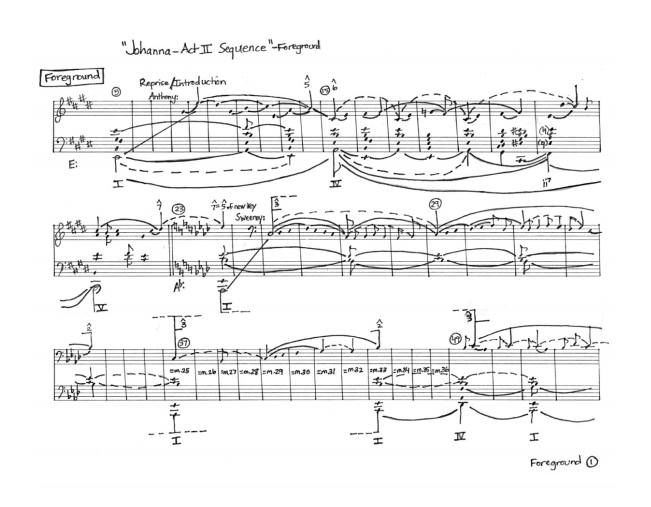 "Johanna-Act II Sequence"-Foreground
Foreground
Reprise/Introduction
Anthony:
5
6
E:
I
IV
ii7
7
23
7=5 of new key
Sweeney:
3
29
Ab:
V
I
2
3
37
=m.25 =m.26 =m.27 =m.28 =m.29 =m.30 =m.31 =m.32 =m.33 =m.34 =m.35 =m.36
2
49
3
I
I
IV
I
Foreground 1